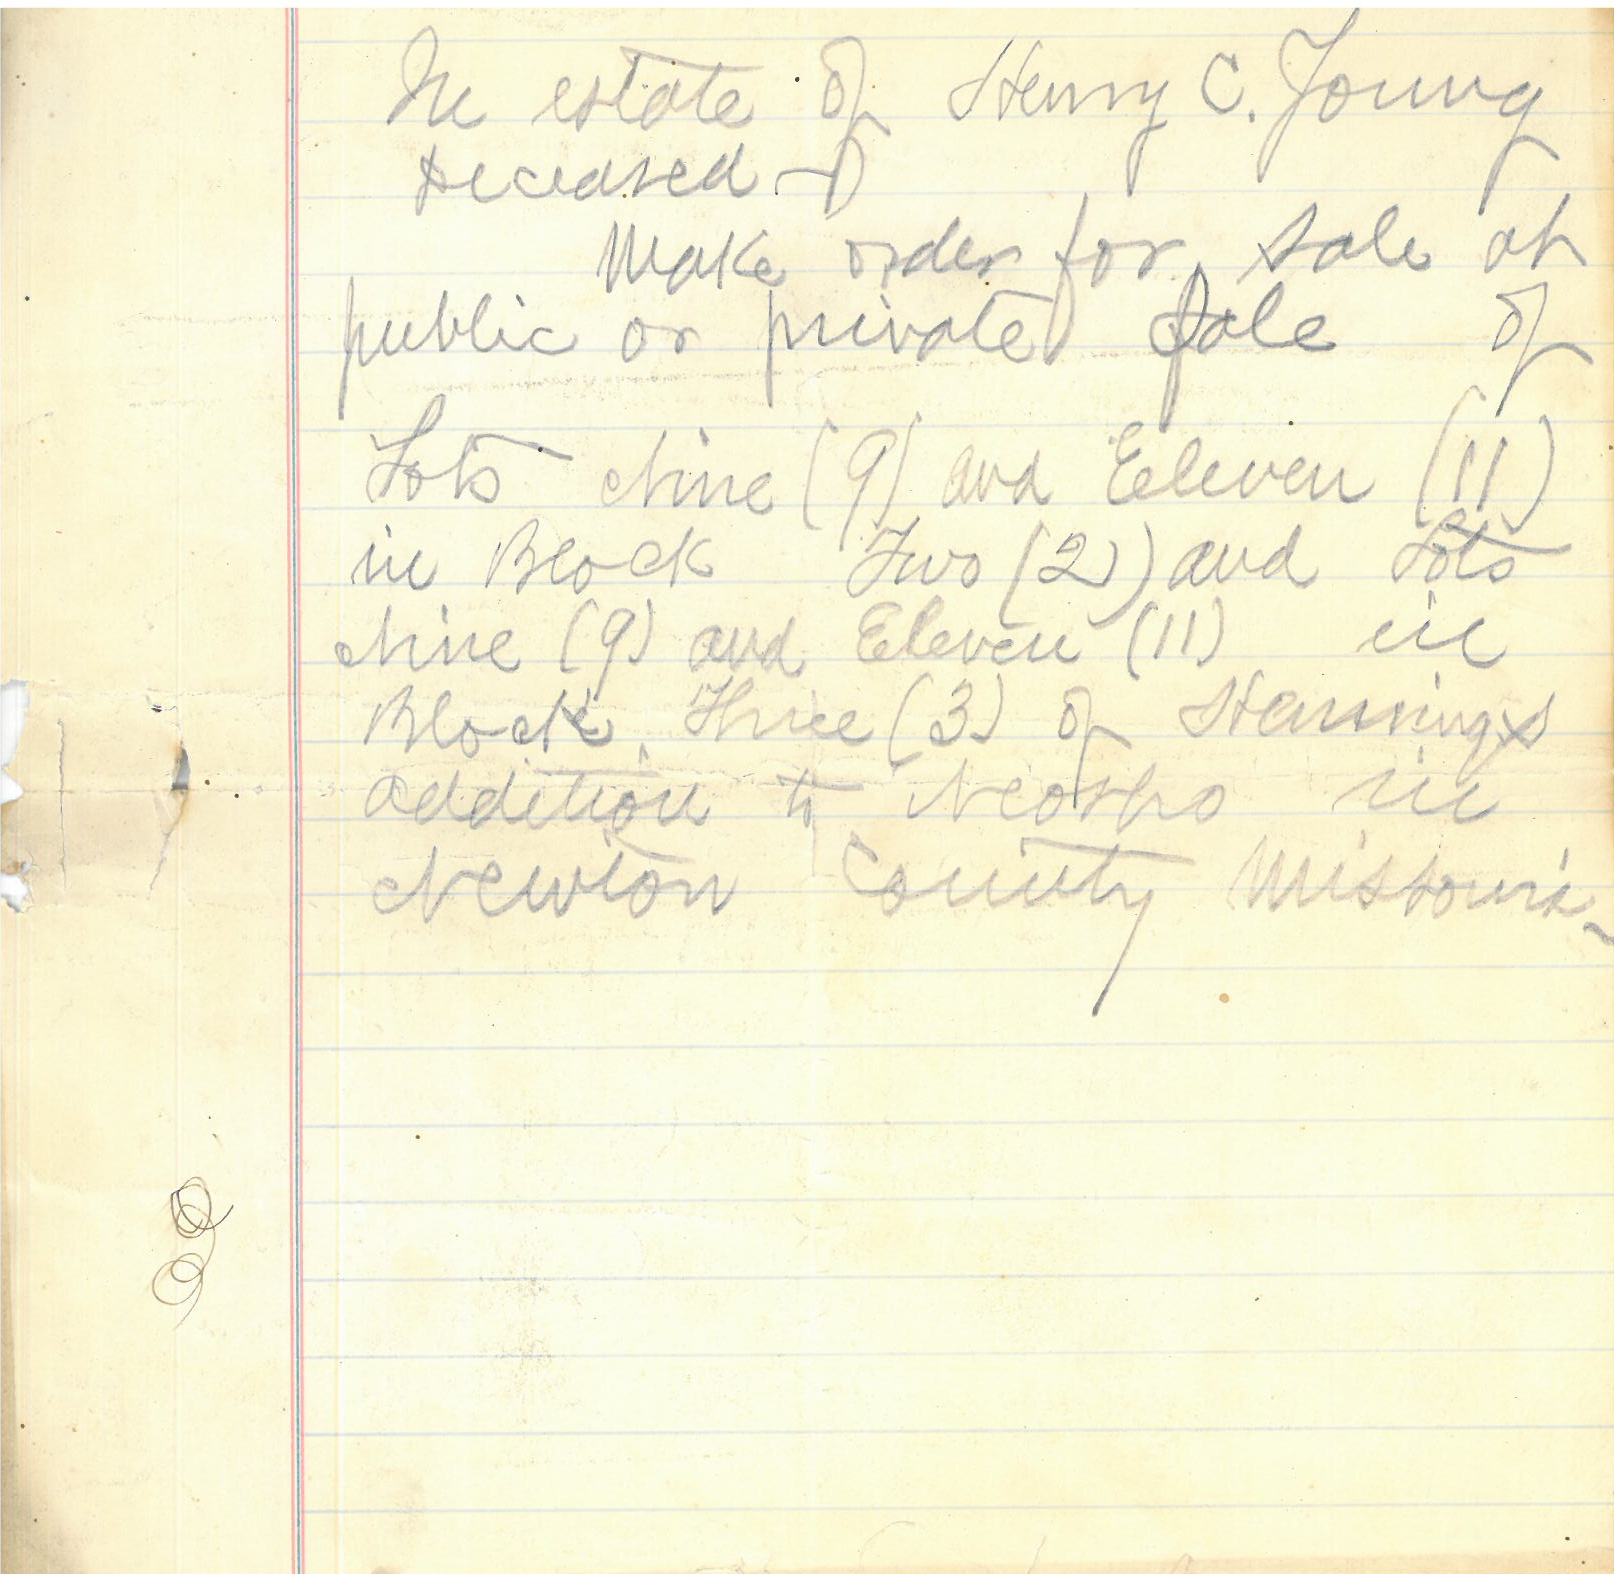 In estate of Henry C. Young
deceased -
Make order for sale at
public or private sale of
Lots Nine (9) and Eeleven (11)
in Block Two (2) and Lots
Nine (9) and Eleven (11) in
Block Three (3) of Hennings
addition to Neosho in
Newton County Missouri -